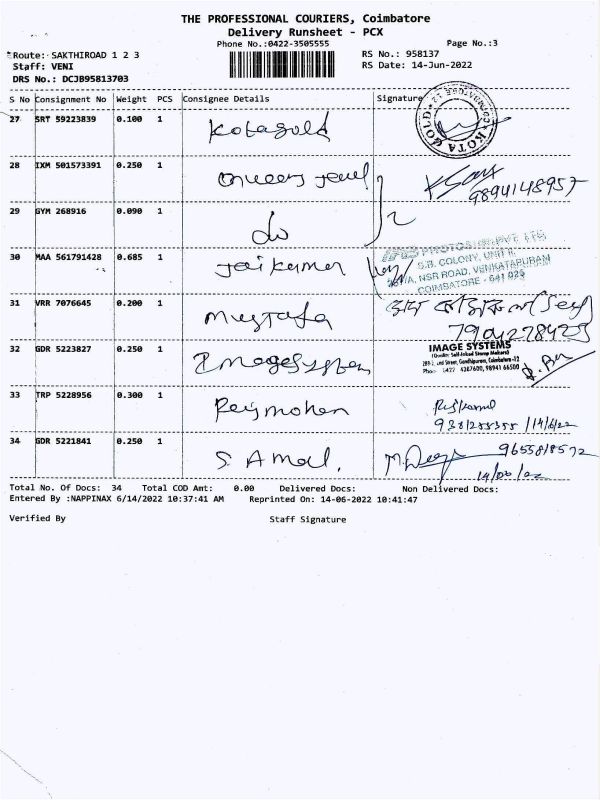 THE PROFESSIONAL COURIERS, Coimbatore
Delivery Runsheet - PCX
Phone No.:0422-3505555
Page No.:3
Route: SAKTHIROAD 1 2 3
RS No.: 958137
Staff: VENI
RS Date: 14-Jun-2022
DRS No.: DCJB95813703
S No Consignment No Weight PCS Consignee Details Signature
27 SRT 59223839 0.100 1 Kotagold
KOTA GOLD
28 IXM 501573391 0.250 1 Queens Jewel
9894148957
29 GYM 268916 0.090 1 do
30 MAA 561791428 0.685 1 Jaikumar
PVT LTD
S.B. COLONY, UNIT II,
NSR ROAD, VENKATAPURAM
COIMBATORE - 641 025
31 VRR 7076645 0.200 1 Mustafa
7904278425
32 GDR 5223827 0.250 1 Imagesystem
IMAGE SYSTEMS
(Quality Self-Inked Stamp Makers)
2nd Street, Gandhipuram, Coimbatore -12
4287600, 98941 66500
33 TRP 5228956 0.300 1 Rajmohan
14/6/22
34 GDR 5221841 0.250 1 S. Amal.
9655818572
Total No. Of Docs: 34 Total COD Amt: 0.00 Delivered Docs: Non Delivered Docs:
Entered By :NAPPINAX 6/14/2022 10:37:41 AM Reprinted On: 14-06-2022 10:41:47
Verified By Staff Signature